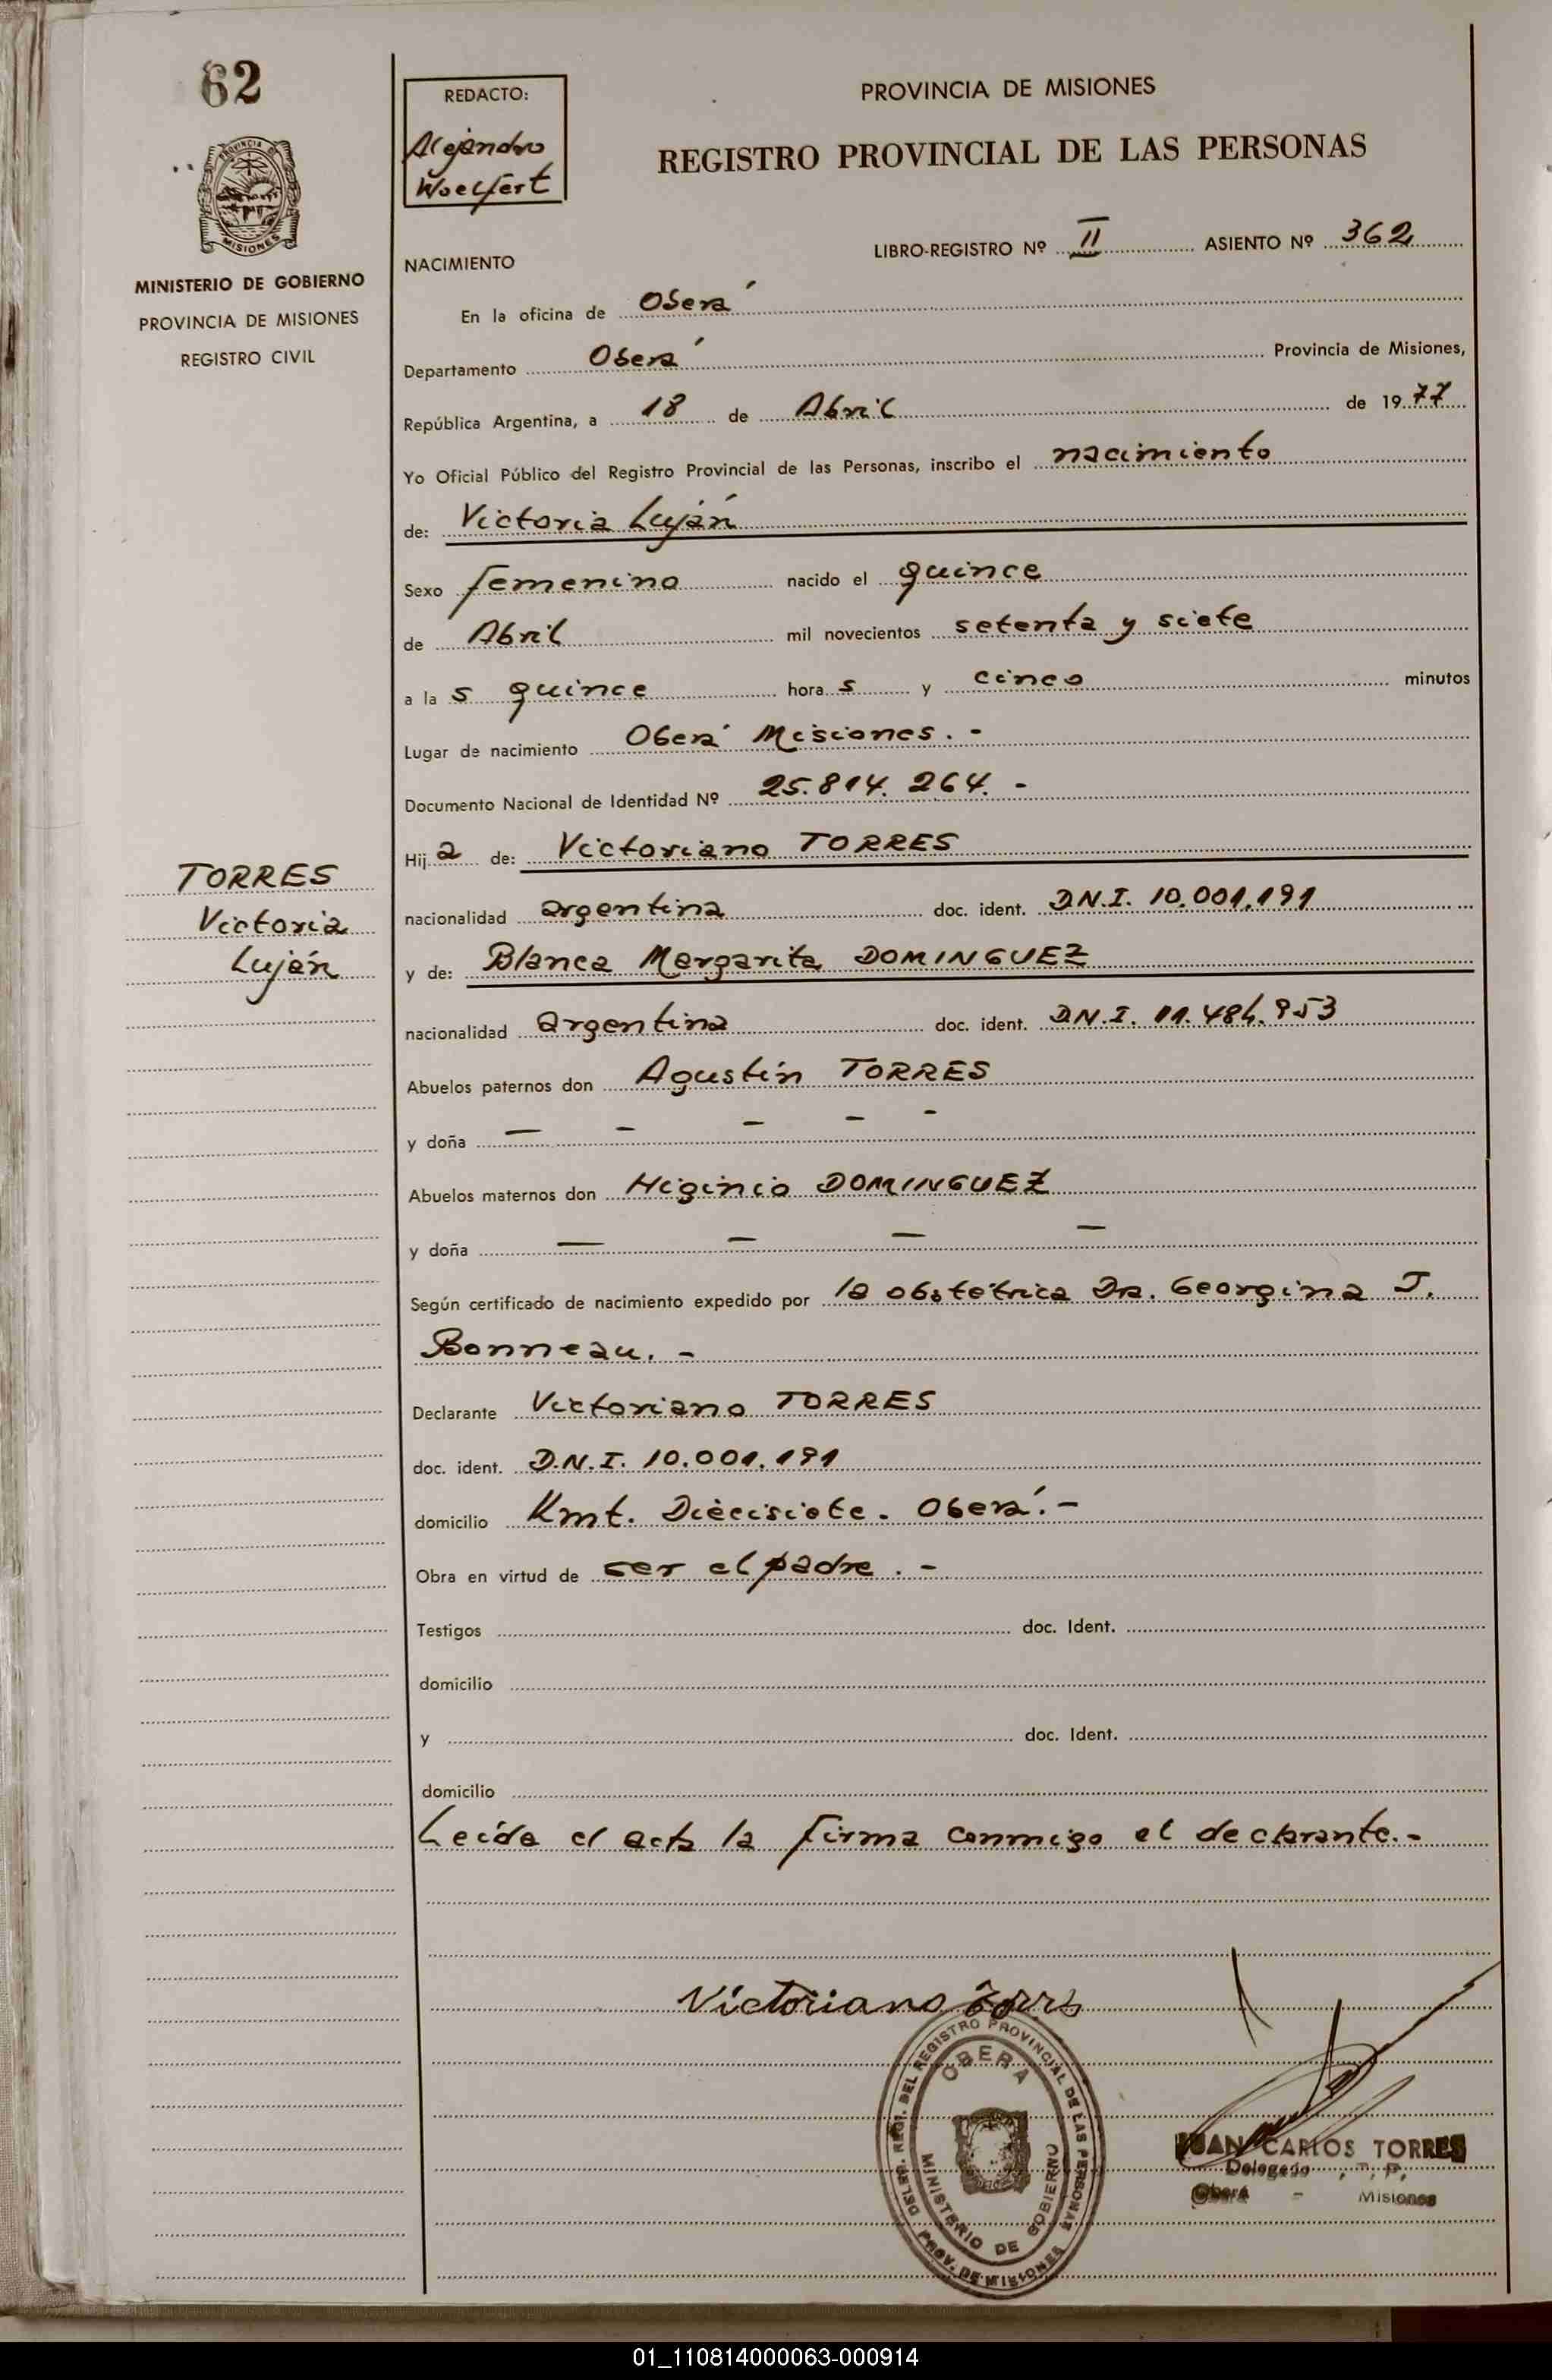 62
REDACTO:
Alejandro
Woelfert
PROVINCIA DE MISIONES
REGISTRO PROVINCIAL DE LAS PERSONAS
PROVINCIA DE
MISIONES
MINISTERIO DE GOBIERNO
PROVINCIA DE MISIONES
REGISTRO CIVIL
LIBRO-REGISTRO Nº II ASIENTO Nº 362
NACIMIENTO
En la oficina de Oberá
Departamento Oberá Provincia de Misiones,
República Argentina, a 18 de Abril de 1977
Yo Oficial Público del Registro Provincial de las Personas, inscribo el nacimiento
de: Victoria Luján
Sexo femenino nacido el quince
de Abril mil novecientos setenta y siete
a la s quince hora s y cinco minutos
Lugar de nacimiento Oberá Misiones. -
Documento Nacional de Identidad Nº 25.814.264. -
Hij a de: Victoriano TORRES
TORRES
Victoria
Luján
nacionalidad argentina doc. ident. D.N.I. 10.001.191
y de: Blanca Margarita DOMINGUEZ
nacionalidad argentina doc. ident. D.N.I. 11.484.953
Abuelos paternos don Agustín TORRES
y doña — - - - -
Abuelos maternos don Higinio DOMINGUEZ
y doña — — — —
Según certificado de nacimiento expedido por la obstétrica Dra. Georgina J.
Bonneau. -
Declarante Victoriano TORRES
doc. ident. D.N.I. 10.001.191
domicilio Kmt. Diecisiete. Oberá. -
Obra en virtud de ser el padre. -
Testigos doc. Ident.
domicilio
y doc. Ident.
domicilio
Leída el acta la firma conmigo el declarante. -
Victoriano Torrs
DELEG. REGT. DEL REGISTRO PROVINCIAL DE LAS PERSONAS
OBERA
MINISTERIO DE GOBIERNO
PROV. DE MISIONES
JUAN CARLOS TORRES
Delegado
Oberá - Misiones
01_110814000063-000914